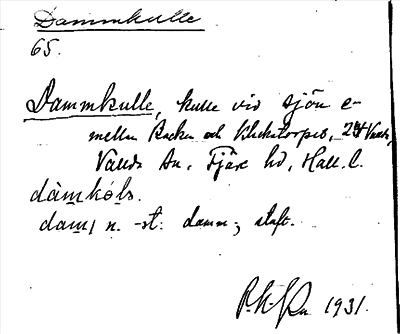 Dammkulle
65.
Dammkulle, kulle vid sjön e-
mellan Backa och Klockstorpes,
Vallda sn, Fjäre hd, Hall. l.
dàmkóls.
dam, n. -st: damm; staft.
1931.